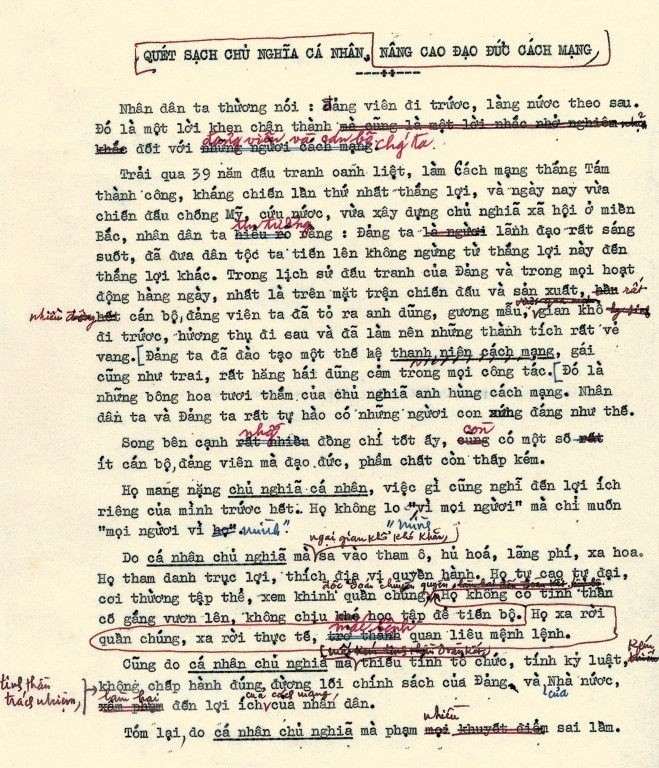 QUÉT SẠCH CHỦ NGHĨA CÁ NHÂN, NÂNG CAO ĐẠO ĐỨC CÁCH MẠNG,
Nhân dân ta thường nói : đảng viên đi trước, làng nước theo sau.
Đó là một lời khen chân thành mà cũng là một lời nhắc nhở nghiêm
đảng viên và cán bộ chg ta.
khắc đối với những người cách mạng
Trải qua 39 năm đấu tranh oanh liệt, làm Cách mạng thắng Tám
thành công, kháng chiến lần thứ nhất thắng lợi, và ngày nay vừa
chiến đấu chống Mỹ, cứu nước, vừa xây dựng chủ nghĩa xã hội ở miền
tin tưởng
Bắc, nhân dân ta hiểu rõ rằng : Đảng ta là người lãnh đạo rất sáng
suốt, đã đưa dân tộc ta tiến lên không ngừng từ thắng lợi này đến
thắng lợi khác. Trong lịch sử đấu tranh của Đảng và trong mọi hoạt
động hàng ngày, nhất là trên mặt trận chiến đấu và sản xuất, hầu rất
nhiều hết cán bộ, đảng viên ta đã tỏ ra anh dũng, gương mẫu, gian khổ
đi trước, hưởng thụ đi sau và đã làm nên những thành tích rất vẻ
vang. [Đảng ta đã đào tạo một thế hệ thanh niên cách mạng, gái
cũng như trai, rất hăng hái dũng cảm trong mọi công tác. [Đó là
những bông hoa tươi thắm của chủ nghĩa anh hùng cách mạng. Nhân
dân ta và Đảng ta rất tự hào có những người con xứng đáng như thế.
những còn
Song bên cạnh rất nhiều đồng chí tốt ấy, cũng có một số rất
ít cán bộ, đảng viên mà đạo đức, phẩm chất còn thấp kém.
Họ mang nặng chủ nghĩa cá nhân, việc gì cũng nghĩ đến lợi ích
riêng của mình trước hết. Họ không lo "vì mọi người" mà chỉ muốn
"mình
"mọi người vì họ" mình".
ngại gian khổ khó khăn,
Do cá nhân chủ nghĩa mà sa vào tham ô, hủ hoá, lãng phí, xa hoa.
Họ tham danh trục lợi, thích địa vị quyền hành. Họ tự cao tự đại,
độc đoán chuyên quyền,
coi thường tập thể, xem khinh quần chúng, Họ không có tinh thần
cố gắng vươn lên, không chịu khó học tập để tiến bộ. Họ xa rời
mắc bệnh
quần chúng, xa rời thực tế, trở thành quan liêu mệnh lệnh.
Cũng do cá nhân chủ nghĩa mà thiếu tính tổ chức, tính kỷ luật,
tinh thần
trách nhiệm, không chấp hành đúng đường lối chính sách của Đảng và Nhà nước,
làm hại của cách mạng, của
xâm phạm đến lợi ích của nhân dân.
nhiều
Tóm lại, do cá nhân chủ nghĩa mà phạm mọi khuyết điểm sai lầm.